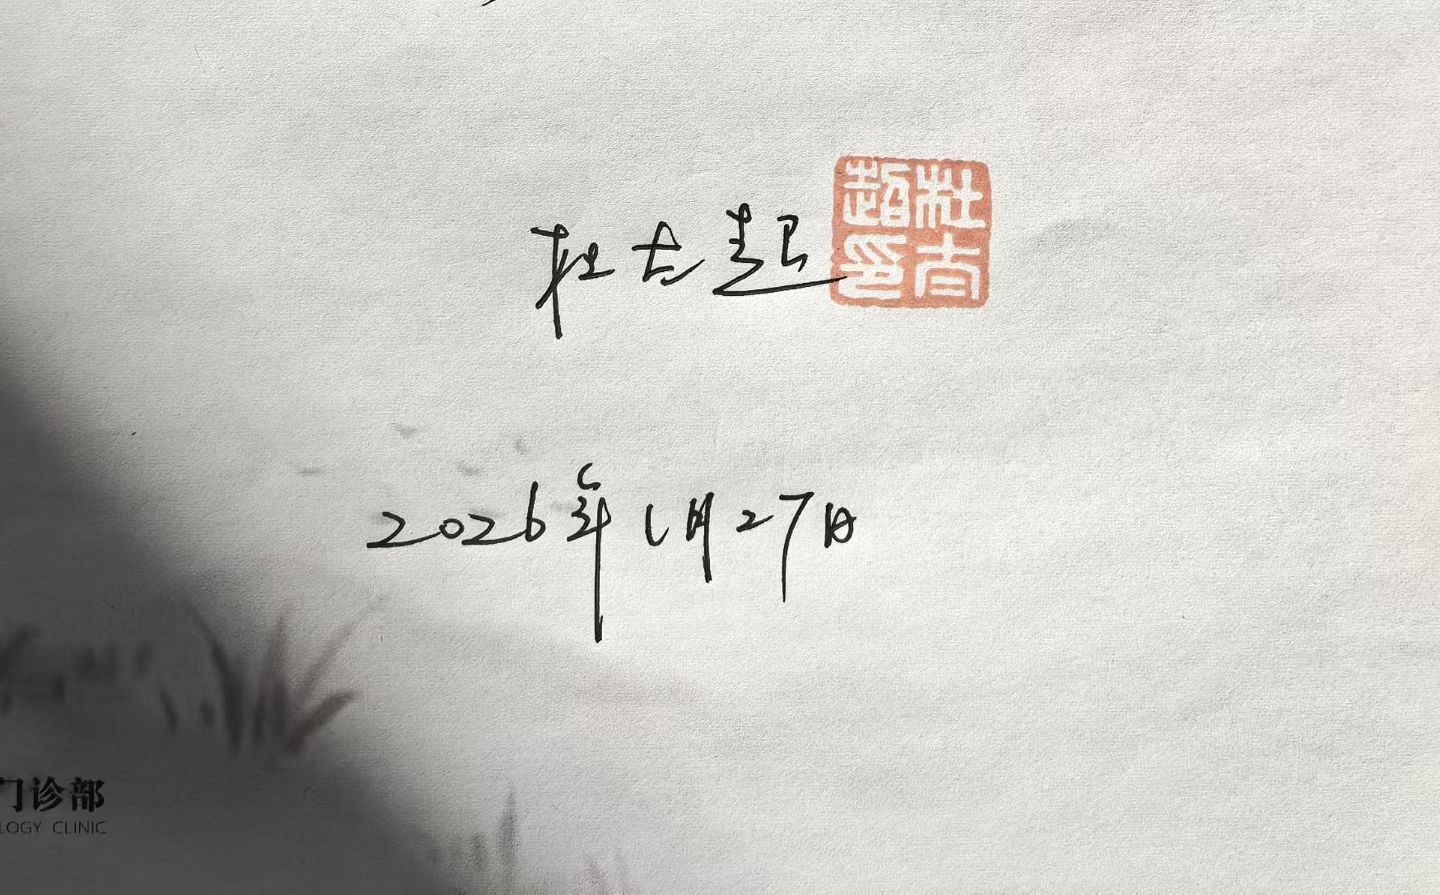 杜超
杜超印
2026年1月27日
门诊部
LOGY CLINIC